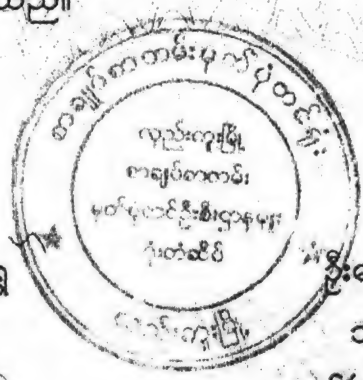 စာချုပ်စာတမ်းမှတ်ပုံတင်ရုံး
လှည်းကူးမြို့
စာချုပ်စာတမ်း
မှတ်ပုံတင်ဦးစီးဌာနမှူး
ရုံးတံဆိပ်
လှည်းကူးမြို့